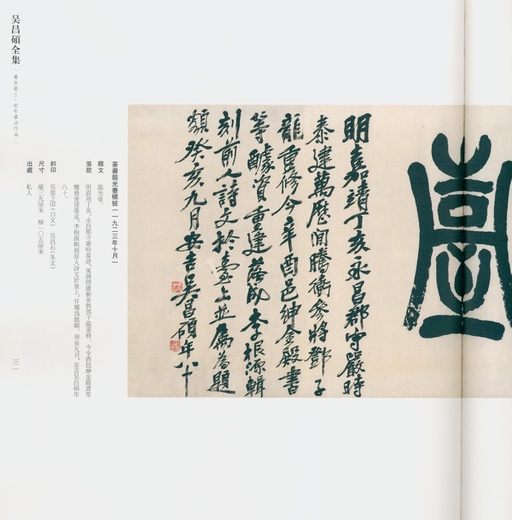 臺
明嘉靖丁亥永昌郡守嚴時
泰建萬歷間騰衝參將鄧子
龍重修今辛酉邑紳金殿書
等醵資重建落成李根源輯
刻前人詩文於臺上並屬篆題
額癸亥九月安吉吳昌碩年八十
吴昌碩全集
書法卷三·紀年書法作品
篆書龍光臺橫披(一九二三年十月)
釋文 龍光臺。
落款 明嘉靖丁亥,永昌郡守嚴時泰建,萬歷間騰衝參將鄧子龍重修,今辛酉邑紳金殿書等
醵資重建落成,李根源輯刻前人詩文於臺上,並屬爲題額。癸亥九月,安吉吳昌碩年
八十。
鈐印 吳俊之印(白文) 吳昌石(朱文)
尺寸 縱三九厘米 橫一〇五厘米
出處 私人
三一